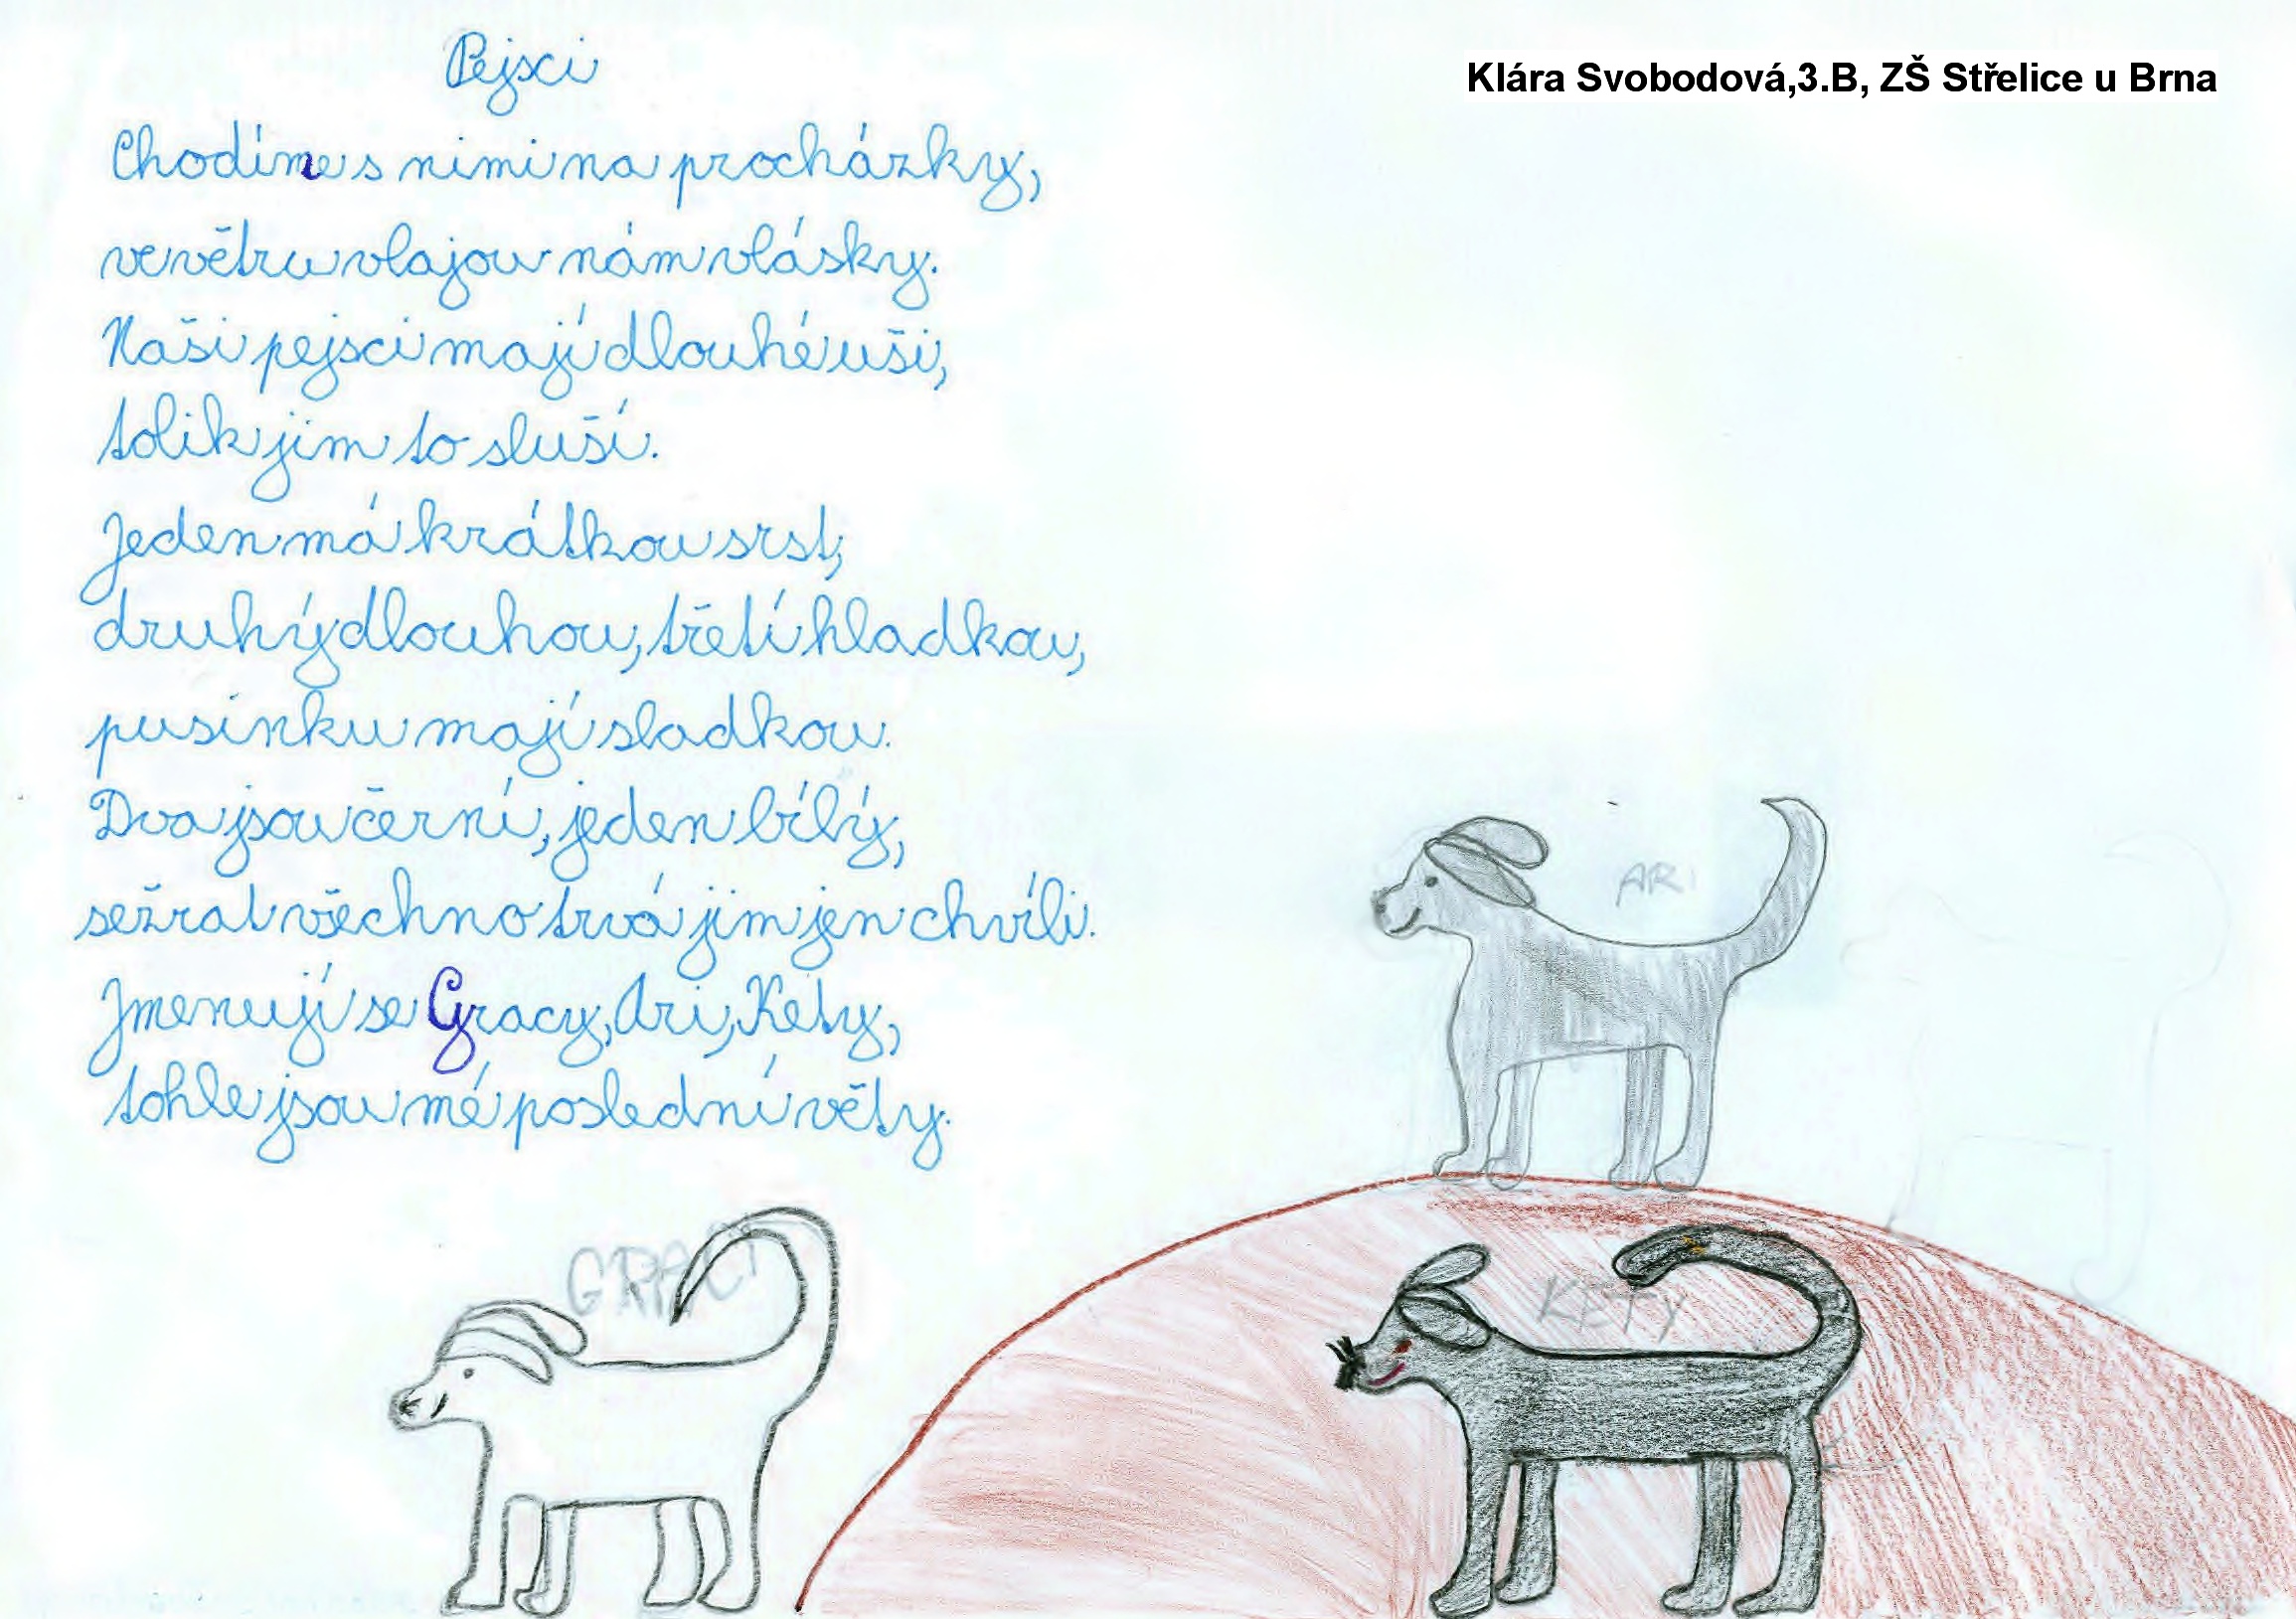 Pejsci
Klára Svobodová,3.B, ZŠ Střelice u Brna
Chodíme s nimi na procházky,
ve větru vlajou nám vlásky.
Naši pejsci mají dlouhé uši,
tolik jim to sluší.
Jeden má krátkou srst,
druhý dlouhou, třetí hladkou,
pusinku mají sladkou.
Dva jsou černí, jeden bílý,
sežrat všechno trvá jim jen chvíli.
Jmenují se Gracy, Ari, Kety,
tohle jsou mé poslední věty.
ARI
GRACI
KETY